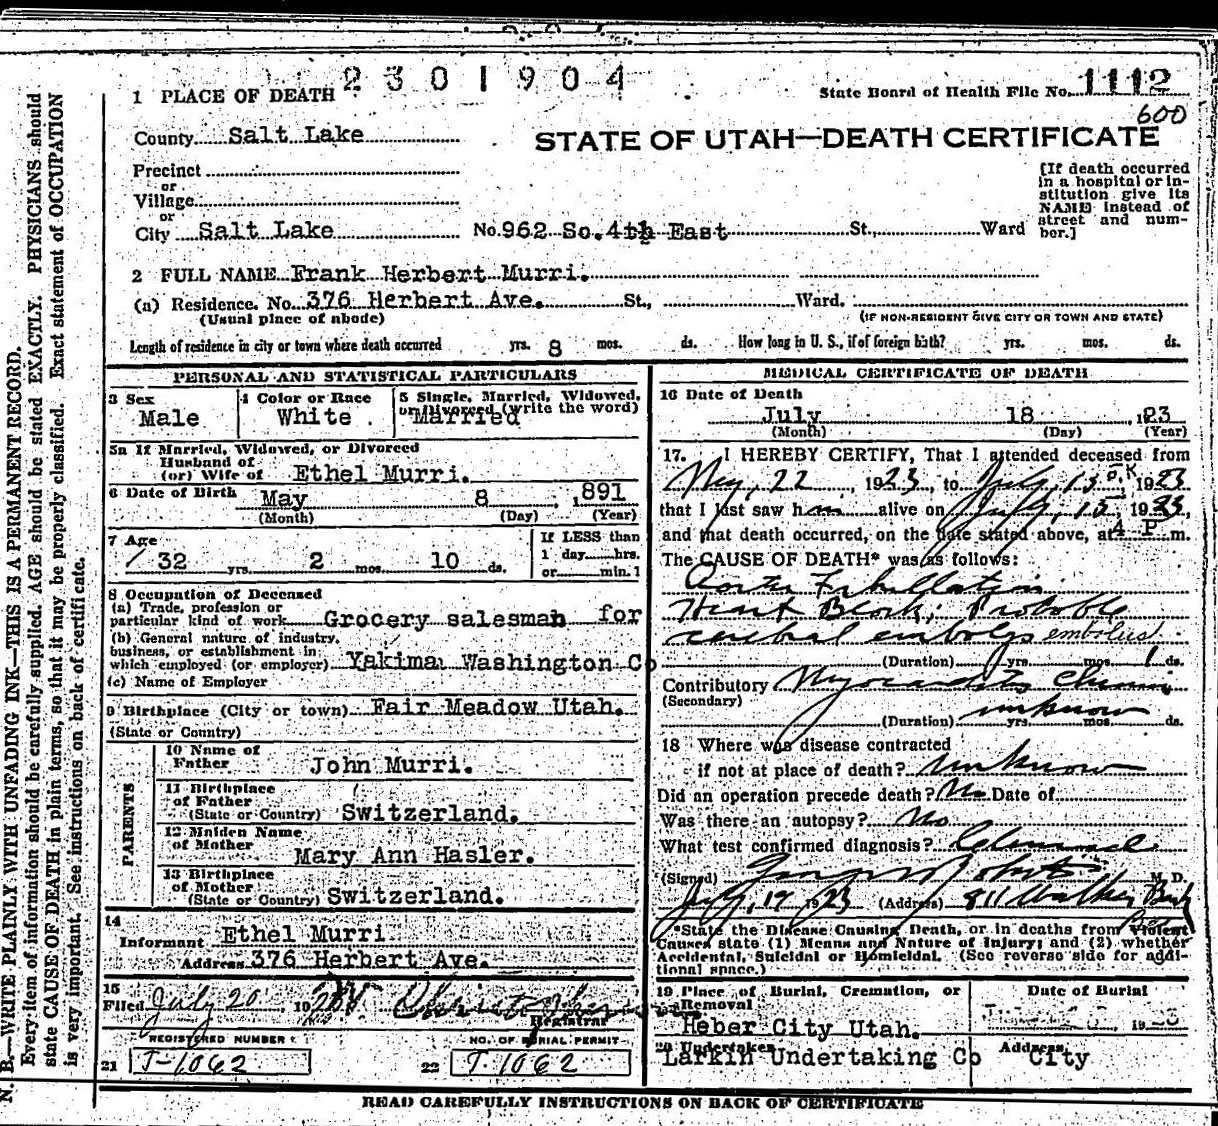 2301904
1 PLACE OF DEATH
State Board of Health File No. 1112
600
County Salt Lake
STATE OF UTAH—DEATH CERTIFICATE
Precinct
or
Village
or
City Salt Lake No. 962 So. 4th East St., Ward
[If death occurred
in a hospital or in-
stitution give its
NAME instead of
street and num-
ber.]
2 FULL NAME Frank Herbert Murri.
(a) Residence. No. 376 Herbert Ave. St., Ward.
(Usual place of abode) (IF NON-RESIDENT GIVE CITY OR TOWN AND STATE)
Length of residence in city or town where death occurred yrs. 8 mos. ds. How long in U. S., if of foreign birth? yrs. mos. ds.
PERSONAL AND STATISTICAL PARTICULARS
3 Sex
Male
4 Color or Race
White
5 Single, Married, Widowed,
or Divorced (write the word)
Married
5a If Married, Widowed, or Divorced
Husband of
(or) Wife of Ethel Murri.
6 Date of Birth May 8 , 1891
(Month) (Day) (Year)
7 Age
32 yrs. 2 mos. 10 ds.
If LESS than
1 day hrs.
or min.1
8 Occupation of Deceased
(a) Trade, profession or
particular kind of work Grocery salesman for
(b) General nature of industry.
business, or establishment in
which employed (or employer) Yakima Washington Co
(c) Name of Employer
9 Birthplace (City or town) Fair Meadow Utah.
(State or Country)
PARENTS
10 Name of
Father John Murri.
11 Birthplace
of Father
(State or Country) Switzerland.
12 Maiden Name
of Mother
Mary Ann Hasler.
13 Birthplace
of Mother
(State or Country) Switzerland.
14
Informant Ethel Murri
Address 376 Herbert Ave.
15
Filed July 20 19
Registrar
REGISTERED NUMBER
21 T-1062
NO. OF BURIAL PERMIT
22 T-1062
MEDICAL CERTIFICATE OF DEATH
16 Date of Death
July 18 , 1923
(Month) (Day) (Year)
17. I HEREBY CERTIFY, That I attended deceased from
May, 22 , 1923, to July, 15 , 1923
that I last saw him alive on July, 15 , 1923,
and that death occurred, on the date stated above, at 4 P m.
The CAUSE OF DEATH* was as follows:
Fibrillation
Heart Block; Probable
cerebral embolus embolus
(Duration) yrs. mos. 1 ds.
Contributory Myocarditis Chronic
(Secondary)
(Duration) unknown yrs. mos. ds.
18 Where was disease contracted
if not at place of death? Unknown
Did an operation precede death? No Date of
Was there an autopsy? No
What test confirmed diagnosis? Clinical
(Signed) M. D.
July, 19 1923 (Address) 811 Walker Bank
Bldg
*State the Disease Causing Death, or in deaths from Violent
Causes state (1) Means and Nature of Injury; and (2) whether
Accidental, Suicidal or Homicidal. (See reverse side for addi-
tional space.)
19 Place of Burial, Cremation, or
Removal
Heber City Utah.
Date of Burial
20 Undertaker
Larkin Undertaking Co
Address
City
READ CAREFULLY INSTRUCTIONS ON BACK OF CERTIFICATE
N. B.—WRITE PLAINLY WITH UNFADING INK—THIS IS A PERMANENT RECORD.
Every item of information should be carefully supplied. AGE should be stated EXACTLY. PHYSICIANS should
state CAUSE OF DEATH in plain terms, so that it may be properly classified. Exact statement of OCCUPATION
is very important. See instructions on back of certificate.